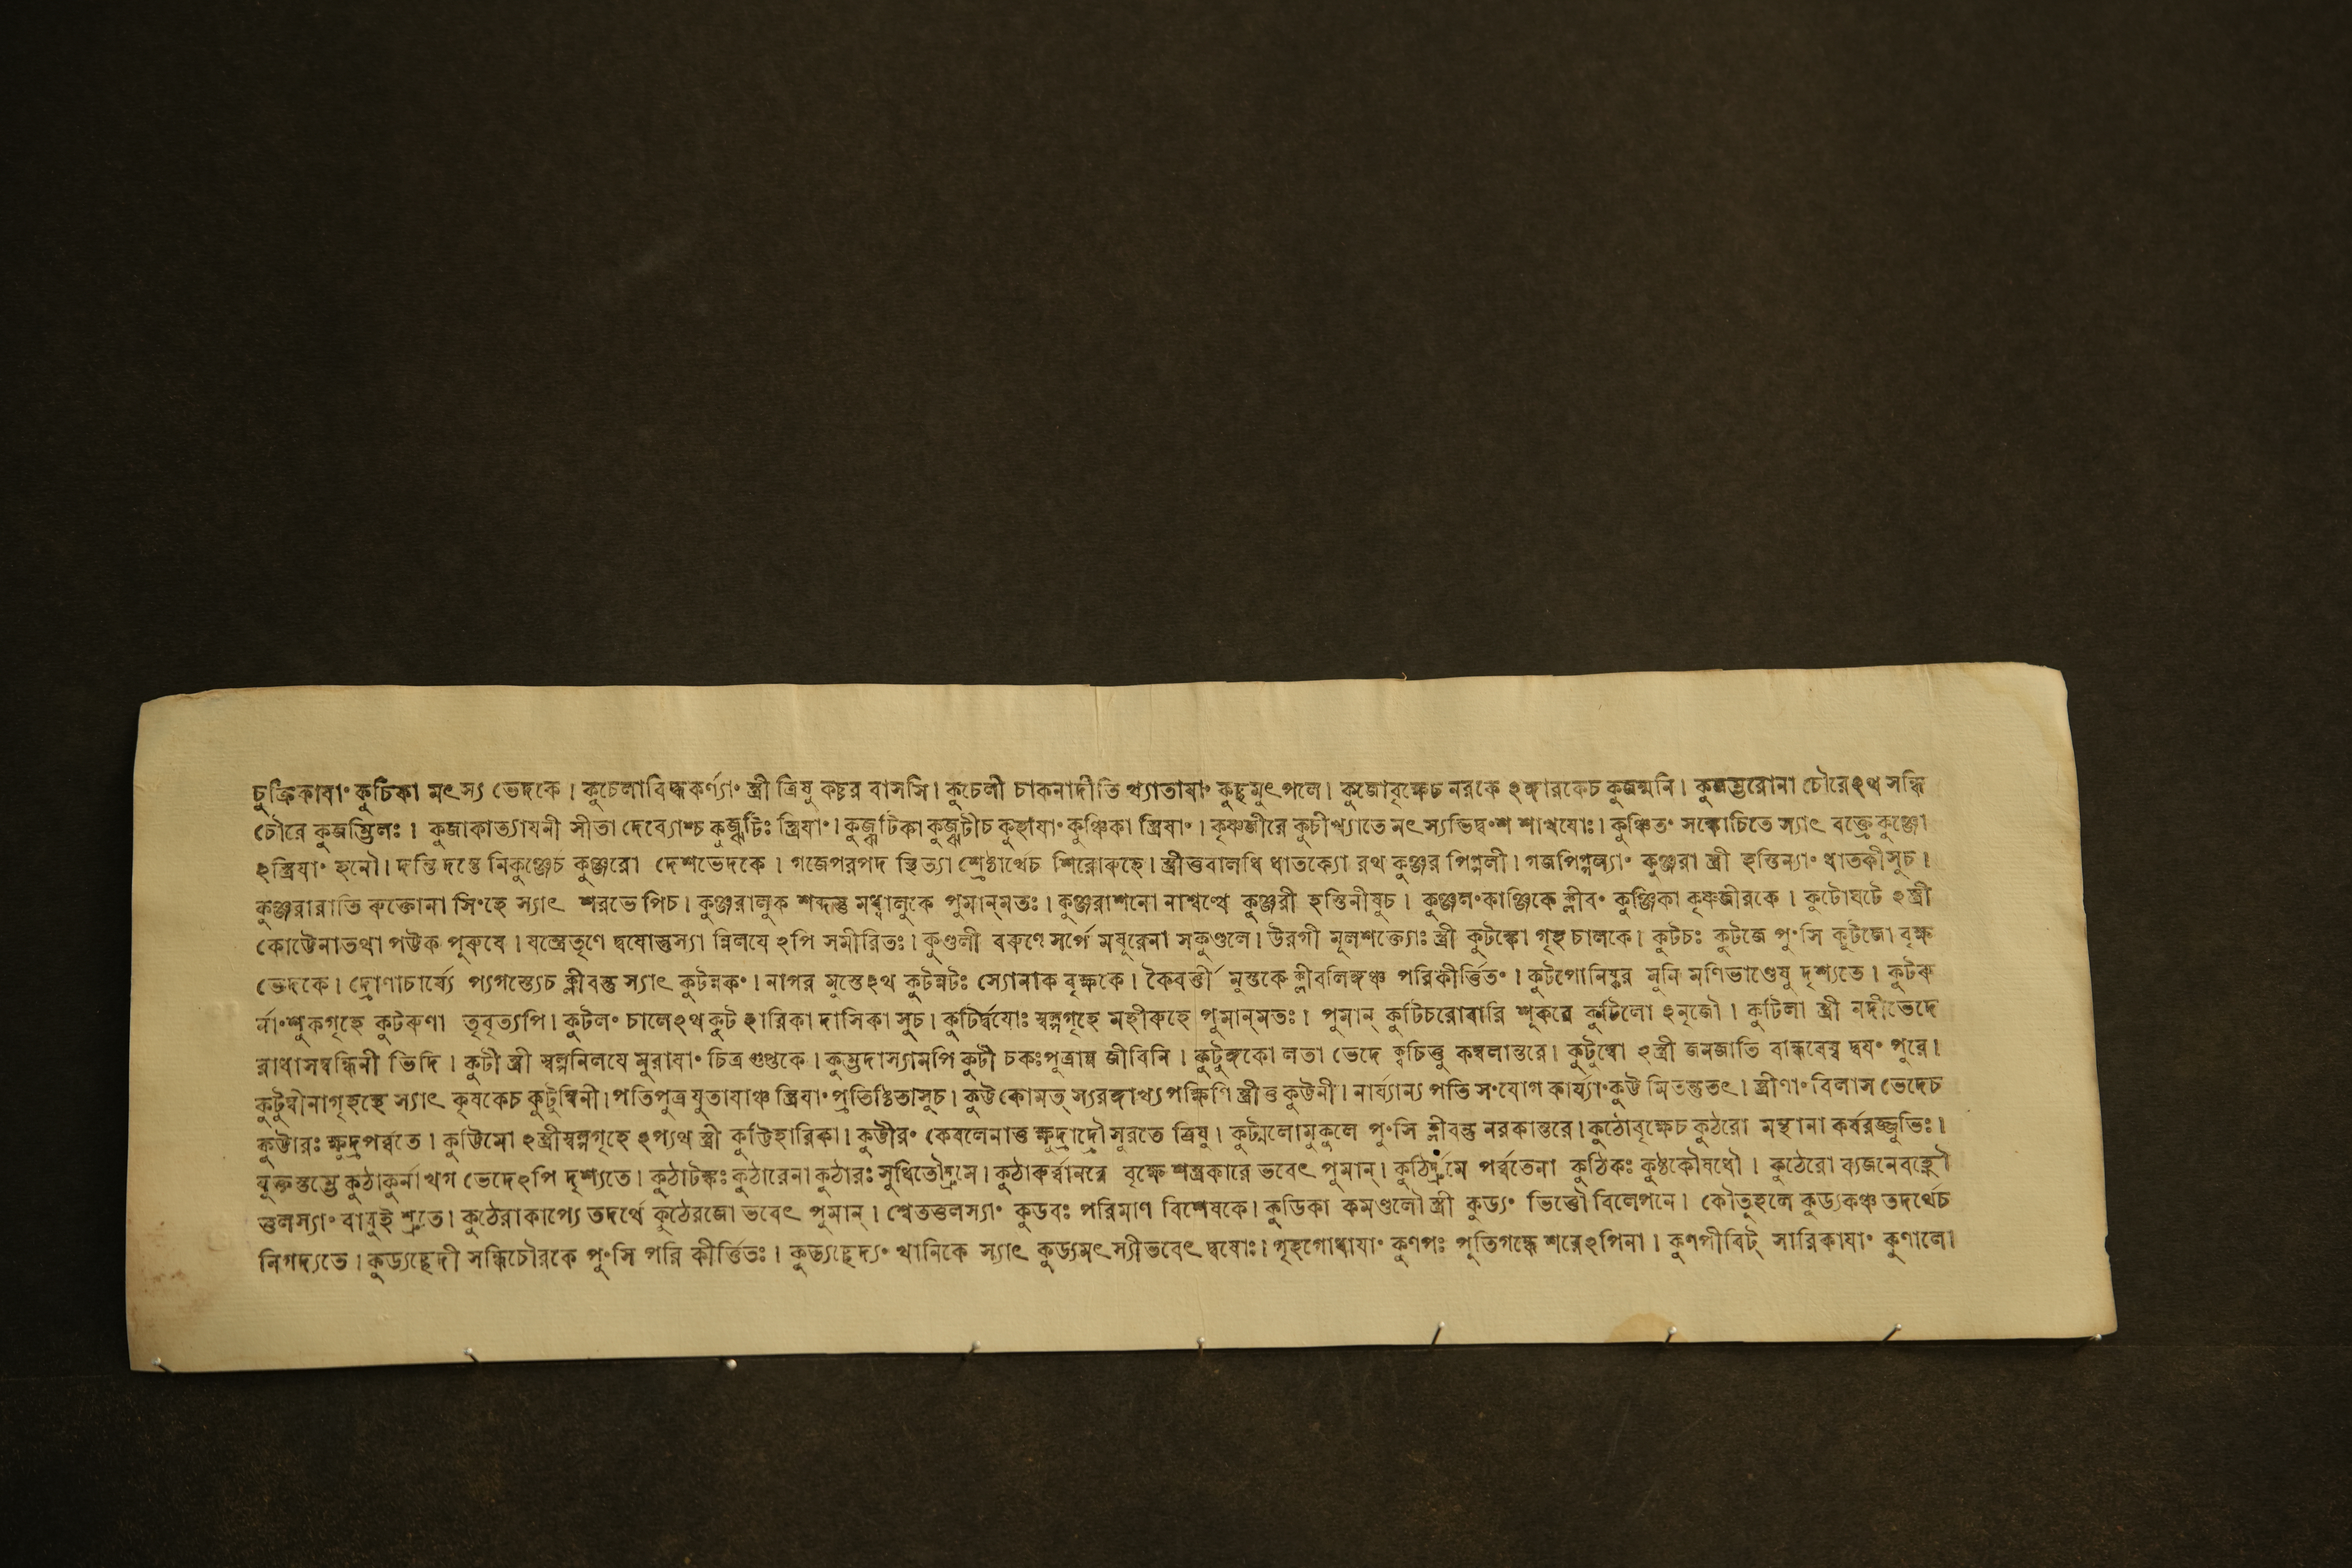 চুক্রিকাযা০ কুচিকা মৎস্য ভেদকে। কুচেলাবিদ্ধকর্ণ্যা০ স্ত্রী ত্রিষু কচ্চর বাসসি। কুচেলী চাকনাদীতি খ্যাতাযা০ কুচ্ছমুৎপলে। কুজোবৃক্ষেচ নরকে ঽঙ্গারকেচ কুজন্মনি। কুজম্ভরোনা চৌরেঽথ সন্ধি
চৌরে কুজম্ভিলঃ। কুজাকাত্যাযনী সীতা দেব্যোশ্চ কুজ্ঝটিঃ স্ত্রিযা০। কুজ্ঝটিকা কুজ্ঝটীচ কুহাযা০ কুঞ্চিকা স্ত্রিযা০। কৃষ্ণজীরে কুচীখ্যাতে মৎস্যভিদ্ব০শ শাখযোঃ। কুঞ্চিত০ সঙ্কোচিতে স্যাৎ বক্ত্রে কুঞ্জো
ঽস্ত্রিযা০ হনৌ। দন্তি দন্তে নিকুঞ্জেচ কুঞ্জরো দেশভেদকে। গজেপরপদ স্থিত্যা শ্রেষ্ঠার্থেচ শিরোরুহে। স্ত্রীত্তবালধি ধাতক্যো রথ কুঞ্জর পিপ্পলী। গজপিপ্পল্যা০ কুঞ্জরা স্ত্রী হস্তিন্যা০ ধাতকীসুচ।
কুঞ্জরারাতি রুক্তোনা সি০হে স্যাৎ শরভে পিচ। কুঞ্জরালুক শব্দস্তু মধ্বালুকে পুমান্মতঃ। কুঞ্জরাশনো নাশ্বত্থে কুঞ্জরী হস্তিনীষুচ। কুঞ্জল০কাঞ্জিকে ক্লীব০ কুঞ্জিকা কৃষ্ণজীরকে। কুটোঘটে ঽস্ত্রী
কোট্টেনাতথা পট্টক পুরুষে। যন্ত্রেতৃণে দ্বযোস্তুস্যা ন্নিলযে ঽপি সমীরিতঃ। কুণ্ডলী বরুণে সর্পে মযূরেনা সকুণ্ডলে। উরগী মূলশক্ত্যোঃ স্ত্রী কুটঙ্কো গৃহ চালকে। কুটচঃ কুটজে পু০সি কুটজো বৃক্ষ
ভেদকে। দ্রোণাচার্য্যে প্যগস্ত্যেচ ক্লীবন্তু স্যাৎ কুটন্নক০। নাগর মুস্তেঽথ কুটন্নটঃ স্যোনাক বৃক্ষকে। কৈবর্ত্তী মুস্তকে ক্লীবলিঙ্গঞ্চ পরিকীর্ত্তিত০। কুটপোনিষ্কর মুনি মণিভাণ্ডেষু দৃশ্যতে। কুটরু
র্না০শুকগৃহে কুটরুণা তৃবৃত্যপি। কুটল০ চালেঽথ কুট হারিকা দাসিকা সুচ। কুটির্দ্বযোঃ স্বল্পগৃহে মহীরুহে পুমান্মতঃ। পুমান্ কুটিচরোবারি শূকরে কুটিলো ঽনৃজৌ। কুটিলা স্ত্রী নদীভেদে
রাধাসম্বন্ধিনী ভিদি। কুটী স্ত্রী স্বল্পনিলযে মুরাযা০ চিত্র গুপ্তকে। কুম্ভদাস্যামপি কুটী চকঃপুত্রান্ন জীবিনি। কুটুঙ্গকো লতা ভেদে ক্বচিত্তু কম্বলান্তরে। কুটুম্বো ঽস্ত্রী জনজাতি বান্ধবেষ্ব দ্বয০ পুরে।
কুটুম্বীনাগৃহস্থে স্যাৎ কৃষকেচ কুটুম্বিনী। পতিপুত্র যুতাযাঞ্চ স্ত্রিযা০ প্রতিষ্ঠিতাসুচ। কুট্ট কোমত্ স্যরঙ্গাখ্য পক্ষিণি স্ত্রীত্ত কুট্টনী। নার্য্যান্য পতি স০যোগ কার্য্যা০কুট্ট মিতন্তুতৎ। স্ত্রীণা০ বিলাস ভেদেচ
কুট্টারঃ ক্ষুদ্রপর্ব্বতে। কুট্টিমো ঽস্ত্রীস্বল্পগৃহে ঽপ্যথ স্ত্রী কুট্টিহারিকা। কুট্টীর০ কেবলেনাত্ত ক্ষুদ্রাদ্রৌ সুরতে ত্রিষু। কুট্মলোমুকুলে পু০সি ক্লীবন্তু নরকান্তরে। কুঠোবৃক্ষেচ কুঠরো মন্থানা কর্ষরজ্জুভিঃ।
যুক্তস্তম্ভে কুঠাকুর্নাখগ ভেদেঽপি দৃশ্যতে। কুঠাটঙ্কঃ কুঠারেনা কুঠারঃ সুধিতৌদ্রুমে। কুঠারুর্ব্বানরে বৃক্ষে শস্ত্রকারে ভবেৎ পুমান্। কুঠির্দ্রুমে পর্ব্বতেনা কুঠিকঃ কুষ্ঠকৌষধৌ। কুঠেরো ব্যজনেবহ্নৌ
ত্তুলস্যা০ বাবুই শ্রুতে। কুঠেরাকাপ্যে তদর্থে কুঠেরজো ভবেৎ পুমান্। শ্বেততুলস্যা০ কুডবঃ পরিমাণ বিশেষকে। কুডিকা কমণ্ডলৌ স্ত্রী কুড্য০ ভিত্তৌ বিলেপনে। কৌতূহলে কুড্যকঞ্চ তদর্থেচ
নিগদ্যতে। কুড্যচ্ছেদী সন্ধিচৌরকে পু০সি পরি কীর্ত্তিতঃ। কুড্যচ্ছেদ্য০ খানিকে স্যাৎ কুড্যমৎ স্যীভবেৎ দ্বযোঃ। গৃহগোধাযা০ কুণপঃ পুতিগন্ধে শবেঽপিনা। কুণপীবিট্ সারিকাযা০ কুণালো